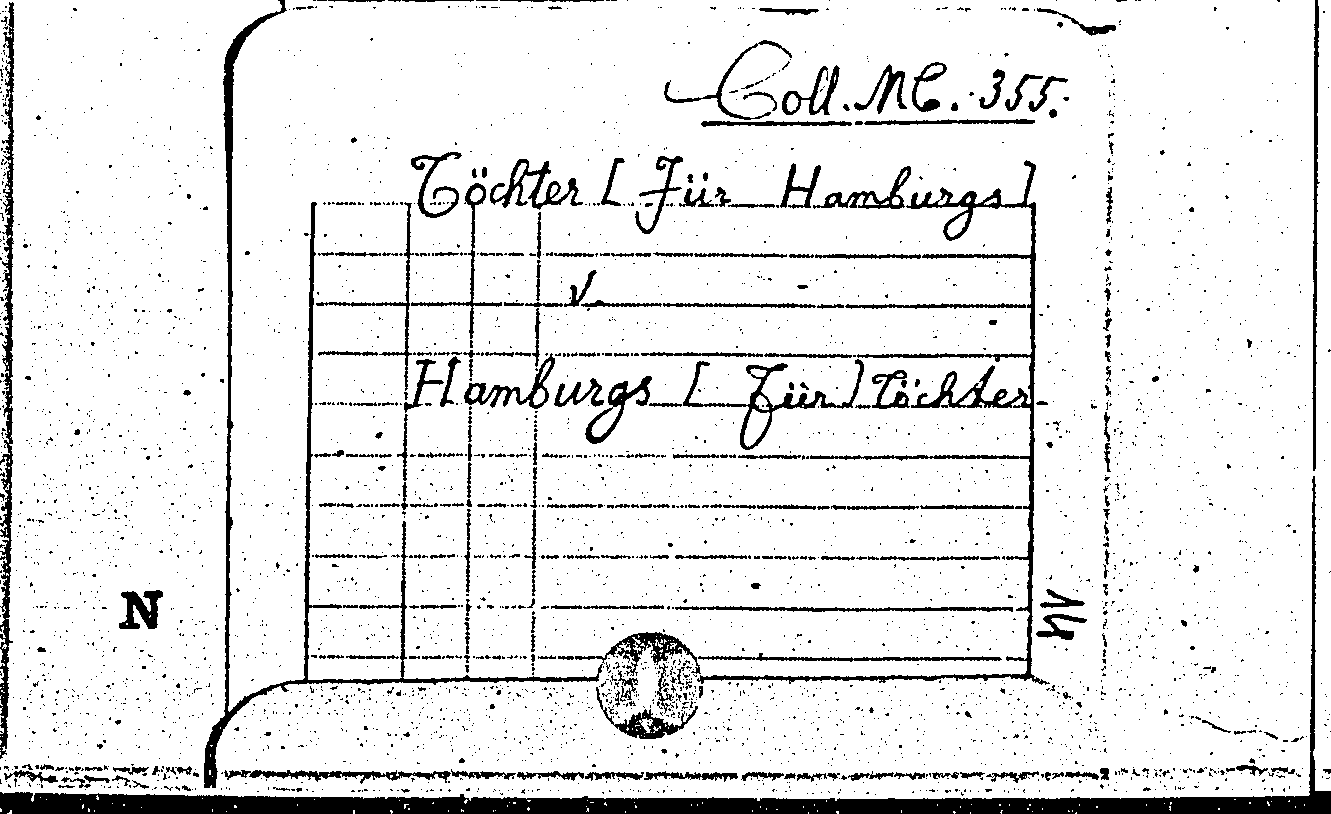 Coll. MC. 355.
Töchter [Für Hamburgs]
v.
Hamburgs [Für] Töchter
N